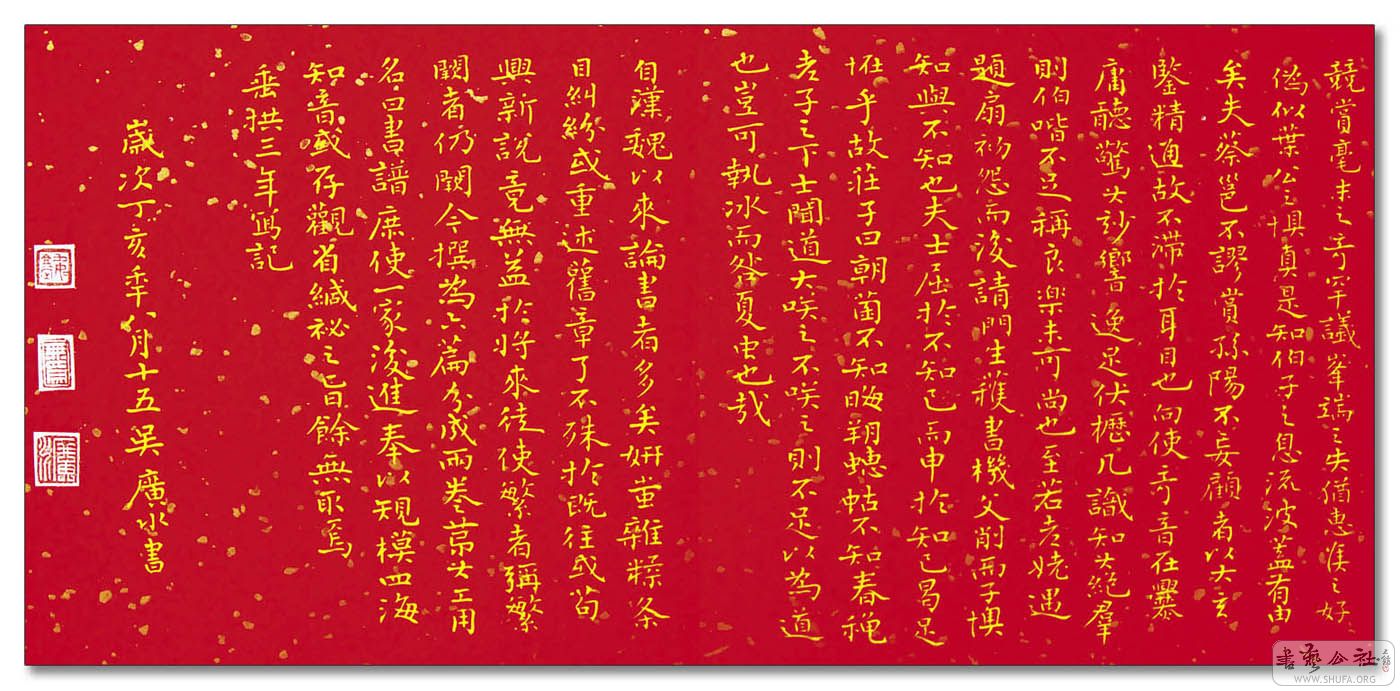 競賞毫末之奇罕議峯端之失猶惠侯之好
偽似葉公之惧真是知伯子之息流波蓋有由
矣夫蔡邕不謬賞孫陽不妄顧者以其玄
鑒精通故不滯於耳目也向使奇音在爨
庸聽驚其妙響逸足伏櫪凡識知其絕群
則伯喈不足稱良樂未可尚也至若老姥遇
題扇初怨而後請門生獲書機父削而子懊
知與不知也夫士屈於不知己而申於知己曷足
恠乎故莊子曰朝菌不知晦朔蟪蛄不知春秋
老子云下士聞道大咲之不咲之則不足以為道
也豈可執冰而咎夏虫也哉
自漢魏以來論書者多矣妍蚩雜糅条
目糾紛或重述舊章了不殊於既往或苟
興新說竟無益於將來徒使繁者彌繁
闕者仍闕今撰為六篇分成兩卷苐其工用
名曰書譜庶使一家後進奉以規模四海
知音或存觀省緘祕之旨餘無取焉
垂拱三年寫記
歲次丁亥年八月十五吳廣水書
書藝公社
WWW.SHUFA.ORG